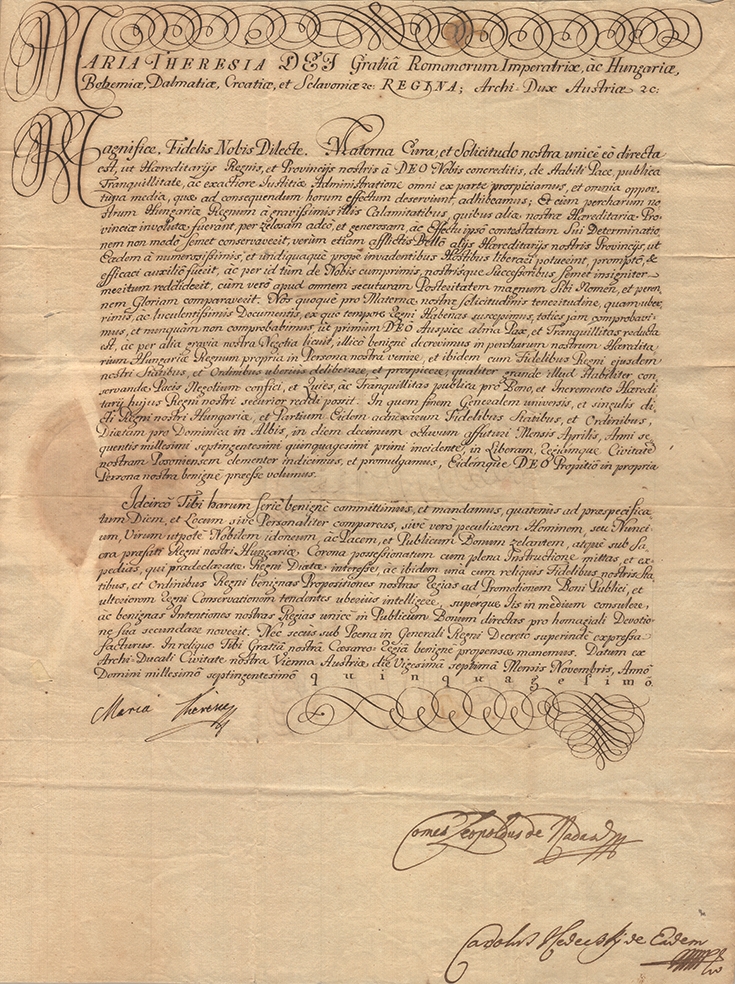 MARIA THERESIA DEI Gratiâ Romanorum Imperatrix, ac Hungariæ,
Bohemiæ, Dalmatiæ, Croatiæ, et Sclavoniæ &c: REGINA; Archi-Dux Austriæ &c:
Magnifice, Fidelis Nobis Dilecte. Materna Cura, et Solicitudo nostra unicè eò directa
est, ut Hæreditarijs Regnis, et Provincijs nostris â DEO Nobis concreditis, de stabili Pace, publica
Tranquillitate, ac exactiore Iustitiæ Administratione omni ex parte prospiciamus, et omnia oppor-
tuna media, quæ ad consequendum horum effectum deserviunt, adhibeamus; Et cùm percharum no-
strum Hungariæ Regnum â gravissimis illis Calamitatibus, quibus aliæ nostræ Hæreditariæ Pro-
vinciæ involutæ fuerant, per zelosam adeò, et generosam, ac Effectu ipsô contestatam sui Determinatio-
nem non modò semet conservaverit, verùm etiam afflictis Bellô alijs Hæreditarijs nostris Provincijs, ut
Eædem â numerosissimis, et undiquaque propè invadentibus Hostibus liberari potuerint, promptô, &
efficaci auxiliô fuerit, ac per id tùm de Nobis cumprimis, nostrisque Successoribus semet insigniter
meritum reddiderit, cùm verò apud omnem secuturam Posteritatem magnum sibi Nomen, et peren-
nem Gloriam comparaverit. Nos quoque pro Maternæ nostræ solicitudinis teneritudine, quam uber-
rimis, ac luculentissimis Documentis, ex quo tempore Regni Habenas suscepimus, toties jam comprobavi-
mus, et nunquam non comprobabimus, ut primùm DEO Auspice alma Pax, et Tranquillitas reducta
est, ac per alia gravia nostra Negotia licuit, illicò benignè decrevimus in percharum nostrum Heredita-
rium Hungariæ Regnum propria in Persona nostra venire, et ibidem cum Fidelibus Regni ejusdem
nostri Statibus, et Ordinibus uberiùs deliberare, et prospicere, qualiter grande illud stabiliter con-
servandæ Pacis Negotium confici, et Quies, ac Tranquillitas publica prò Bono, et Incremento Hæredi-
tarij hujus Regni nostri securior reddi possit. In quem finem Generalem universis, et singulis di-
cti Regni nostri Hungariæ, et Partium Eidem adnexarum Fidelibus Statibus, et Ordinibus,
Diætam pro Dominica in Albis, in diem decimum octavum affuturi Mensis Aprilis, Anni se-
quentis millesimi septingentesimi quinquagesimi primi incidente, in Liberam, Regiamque Civitatē
nostram Posoniensem clementer indicimus, et promulgamus, Eidemque DEO Propitiô in propria
Persona nostra benignè præesse volumus.
Idcircò Tibi harum serie benignè committimus, et mandamus, quatenus ad præspecifica-
tum Diem, et Locum sivè Personaliter compareas, sivè verò peculiarem Hominem, seu Nunci-
um, Virum utpotè Nobilem idoneum, ac Pacem, et Publicum Bonum zelantem, atquè sub Sa-
cra præfati Regni nostri Hungariæ Corona possessionatum cum plena Instructione mittas, et ex-
pedias, qui prædeclaratæ Regni Diætæ interesse, ac ibidem una cum reliquis Fidelibus nostris Sta-
tibus, et Ordinibus Regni benignas Propositiones nostras Regias ad Promotionem Boni Publici, et
ulteriorem Regni Conservationem tendentes uberiùs intelligere, superque Iis in medium consulere,
ac benignas Intentiones nostras Regias unicè in Publicum Bonum directas pro homagiali Devotio-
ne sua secundare noverit. Nec secus sub Poena in Generali Regni Decreto superindè expressa
facturus. In reliquo Tibi Gratiâ nostrâ Cæsareo-Regiâ benignè propensæ manemus. Datum ex
Archi-Ducali Civitate nostra Vienna Austriæ, die Vigesima septima Mensis Novembris, Annô
Domini millesimô septingentesimô quinquagesimô
Maria Theresia
Comes Leopoldus de Nadasd
Carolus Hederváry de Eadem